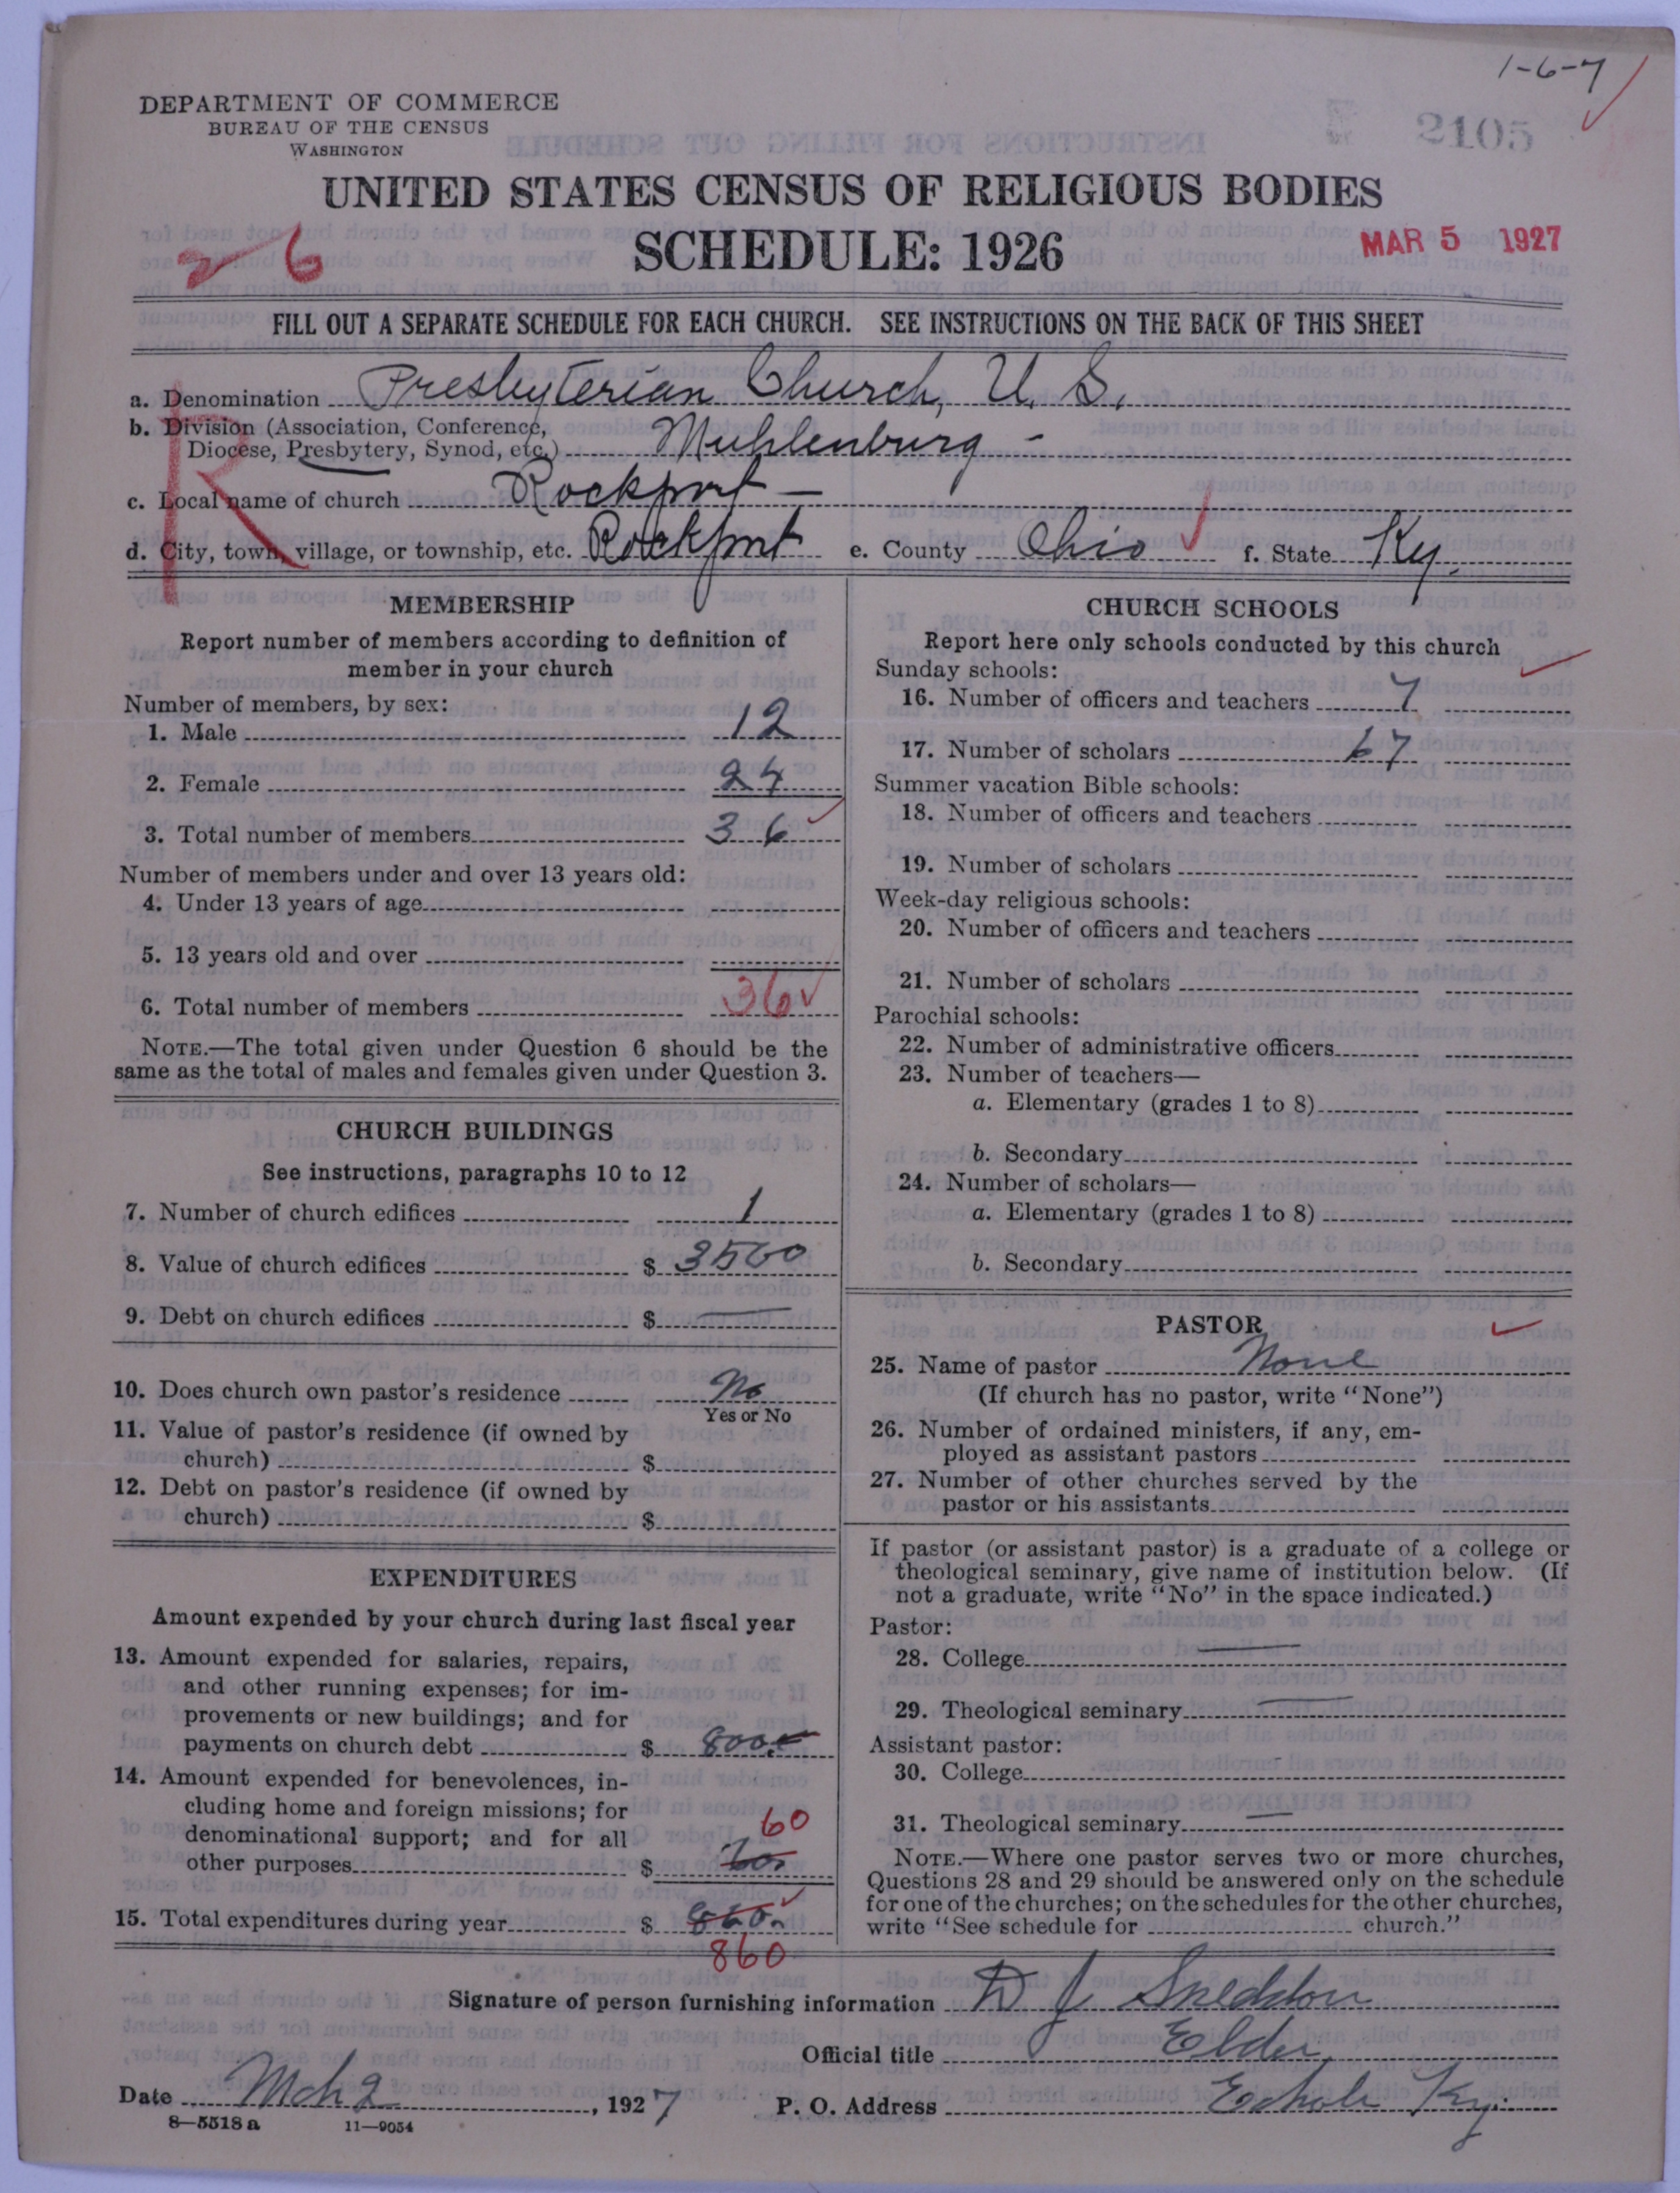 1-6-7
DEPARTMENT OF COMMERCE
BUREAU OF THE CENSUS
WASHINGTON
2105
UNITED STATES CENSUS OF RELIGIOUS BODIES
SCHEDULE: 1926
MAR 5 1927
26
FILL OUT A SEPARATE SCHEDULE FOR EACH CHURCH. SEE INSTRUCTIONS ON THE BACK OF THIS SHEET
R
a. Denomination Presbyterian Church, U. S.
b. Division (Association, Conference,
Diocese, Presbytery, Synod, etc.) Muhlenburg -
c. Local name of church Rockport -
d. City, town, village, or township, etc. Rockport e. County Ohio f. State Ky.
MEMBERSHIP
Report number of members according to definition of
member in your church
Number of members, by sex:
1. Male 12
2. Female 24
3. Total number of members 36
Number of members under and over 13 years old:
4. Under 13 years of age
5. 13 years old and over
6. Total number of members 36
NOTE.—The total given under Question 6 should be the
same as the total of males and females given under Question 3.
CHURCH BUILDINGS
See instructions, paragraphs 10 to 12
7. Number of church edifices 1
8. Value of church edifices $ 3500
9. Debt on church edifices $ —
10. Does church own pastor's residence No
Yes or No
11. Value of pastor's residence (if owned by
church) $
12. Debt on pastor's residence (if owned by
church) $
EXPENDITURES
Amount expended by your church during last fiscal year
13. Amount expended for salaries, repairs,
and other running expenses; for im-
provements or new buildings; and for
payments on church debt $ 800
14. Amount expended for benevolences, in-
cluding home and foreign missions; for
denominational support; and for all 60
other purposes $ 60
15. Total expenditures during year $ 860
860
CHURCH SCHOOLS
Report here only schools conducted by this church
Sunday schools:
16. Number of officers and teachers 7
17. Number of scholars 67
Summer vacation Bible schools:
18. Number of officers and teachers
19. Number of scholars
Week-day religious schools:
20. Number of officers and teachers
21. Number of scholars
Parochial schools:
22. Number of administrative officers
23. Number of teachers—
a. Elementary (grades 1 to 8)
b. Secondary
24. Number of scholars—
a. Elementary (grades 1 to 8)
b. Secondary
PASTOR
25. Name of pastor None
(If church has no pastor, write "None")
26. Number of ordained ministers, if any, em-
ployed as assistant pastors
27. Number of other churches served by the
pastor or his assistants
If pastor (or assistant pastor) is a graduate of a college or
theological seminary, give name of institution below. (If
not a graduate, write "No" in the space indicated.)
Pastor:
28. College —
29. Theological seminary —
Assistant pastor:
30. College
31. Theological seminary —
NOTE.—Where one pastor serves two or more churches,
Questions 28 and 29 should be answered only on the schedule
for one of the churches; on the schedules for the other churches,
write "See schedule for church."
Signature of person furnishing information D J Sneddon
Official title Elder
Date Mch 2, 1927 P. O. Address Echols Ky.
8—5518 a 11—9054